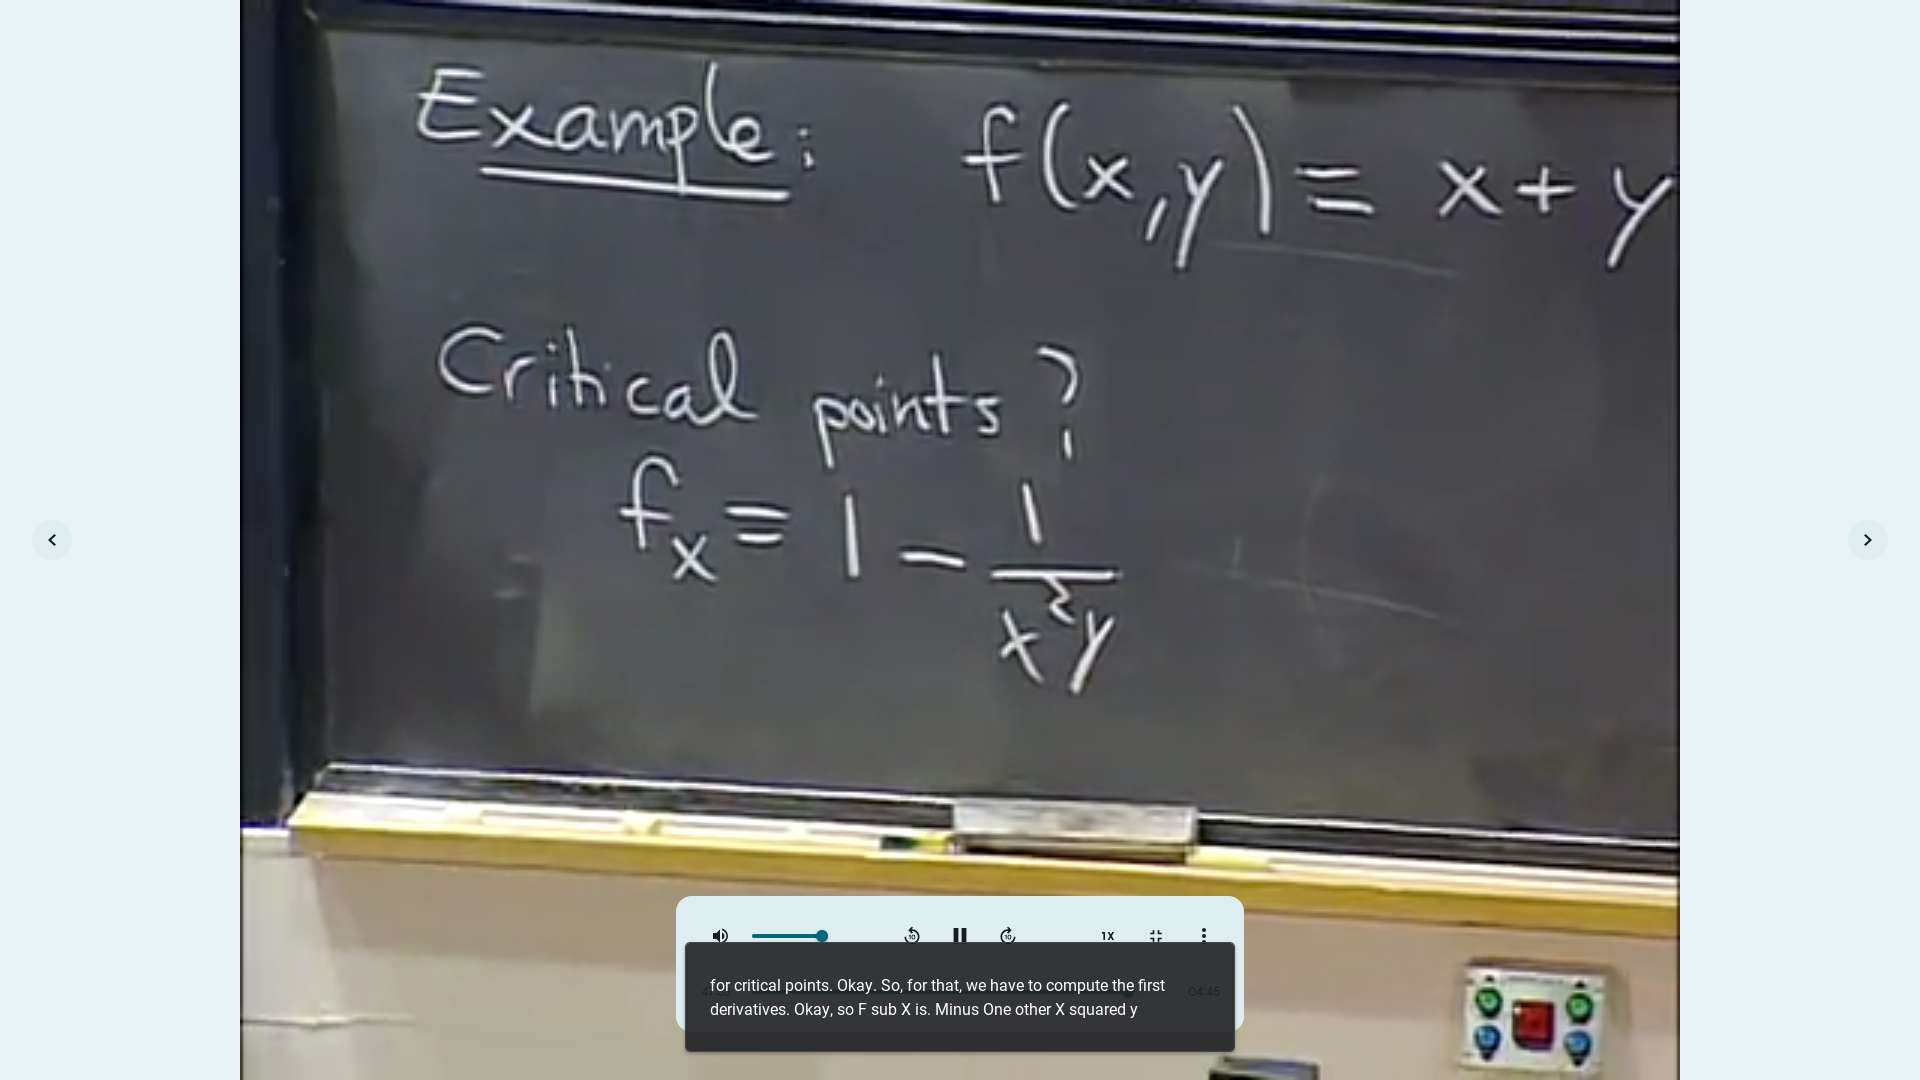 Example: f(x,y) = x + y
Critical points?
f_x = 1 - 1/(x²y)
1X
04:45
for critical points. Okay. So, for that, we have to compute the first
derivatives. Okay, so F sub X is. Minus One other X squared y